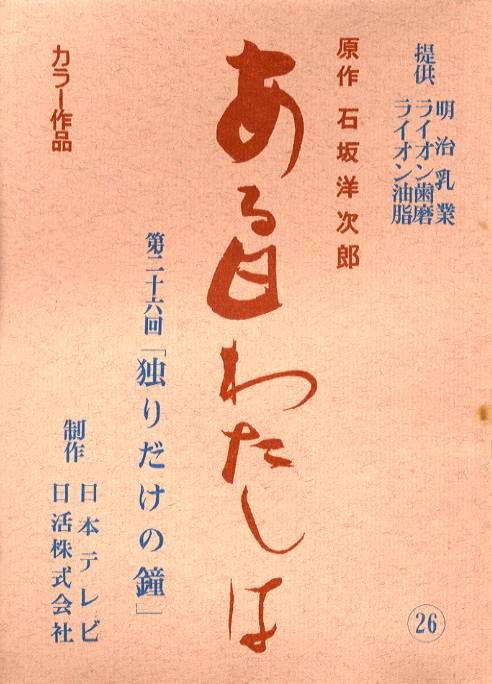 提供
明治乳業
ライオン歯磨
ライオン油脂
原作 石坂洋次郎
ある日わたしは
第二十六回「独りだけの鐘」
カラー作品
制作
日本テレビ
日活株式会社
26